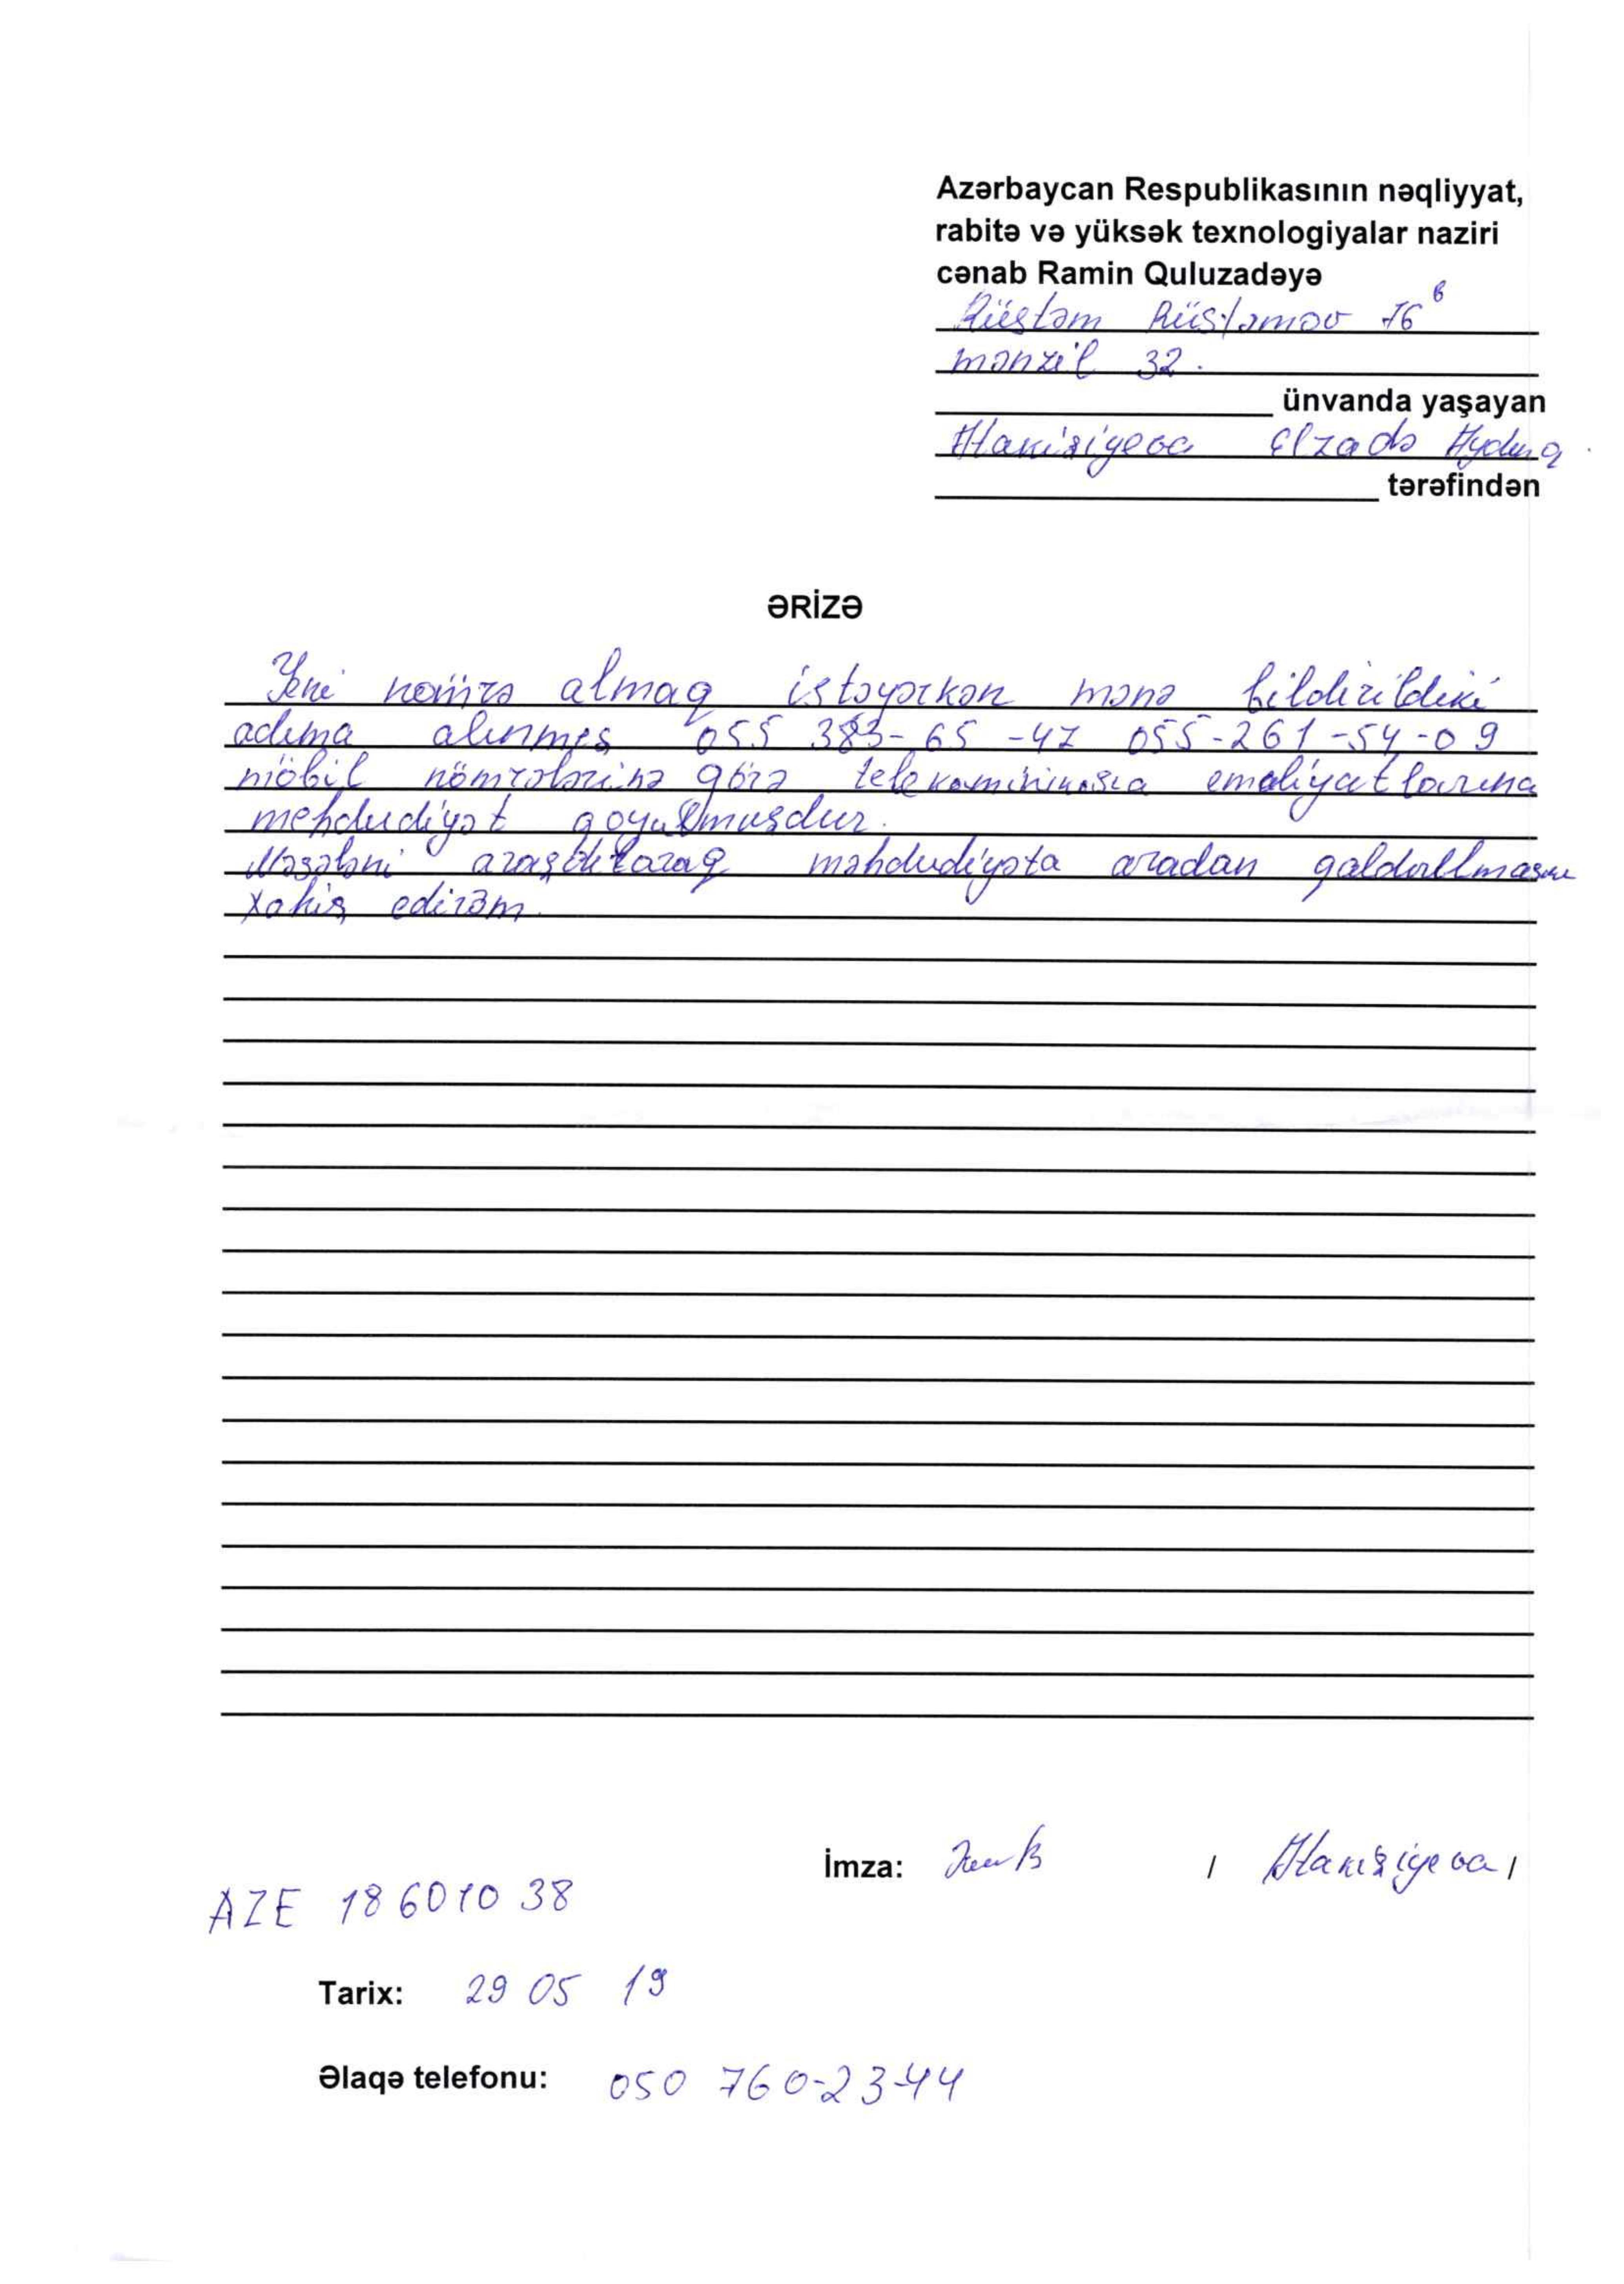 Azərbaycan Respublikasının nəqliyyat,
rabitə və yüksək texnologiyalar naziri
cənab Ramin Quluzadəyə
Rüstəm Rüstəmov 76 в
mənzil 32.
ünvanda yaşayan
Elzadə Aydın q
tərəfindən
ƏRİZƏ
Yeni nömrə almaq istəyərkən mənə bildirildiki
adıma alınmış 055 383-65-47 055-261-54-09
mobil nömrələrinə görə telekominikasia emaliyatlarına
mehdudiyət qoyulmuşdur.
Məsələni araşdıraraq məhdudiyəta aradan qaldırıllmasını
xahiş edirəm.
İmza: / /
AZE 18601038
Tarix: 29 05 19
Əlaqə telefonu: 050 760-23-44